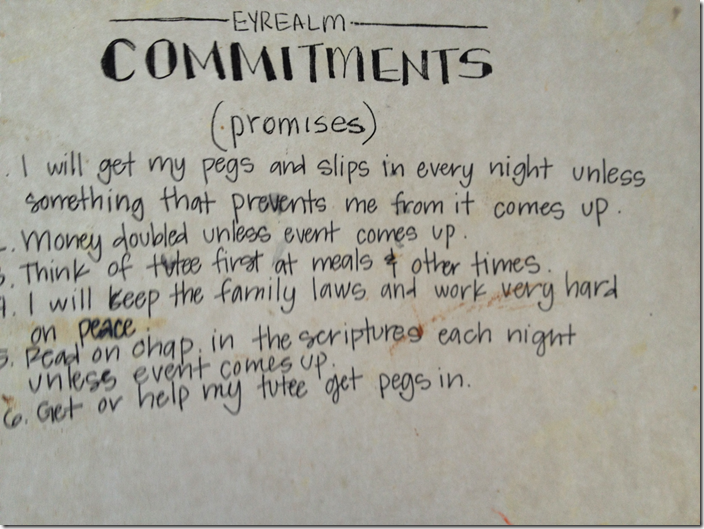 EYREALM
COMMITMENTS
(promises)
. I will get my pegs and slips in every night unless
something that prevents me from it comes up.
2. Money doubled unless event comes up.
3. Think of tutee first at meals & other times.
4. I will keep the family laws and work very hard
on peace.
5. Read on chap. in the scriptures each night
unless event comes up.
6. Get or help my tutee get pegs in.